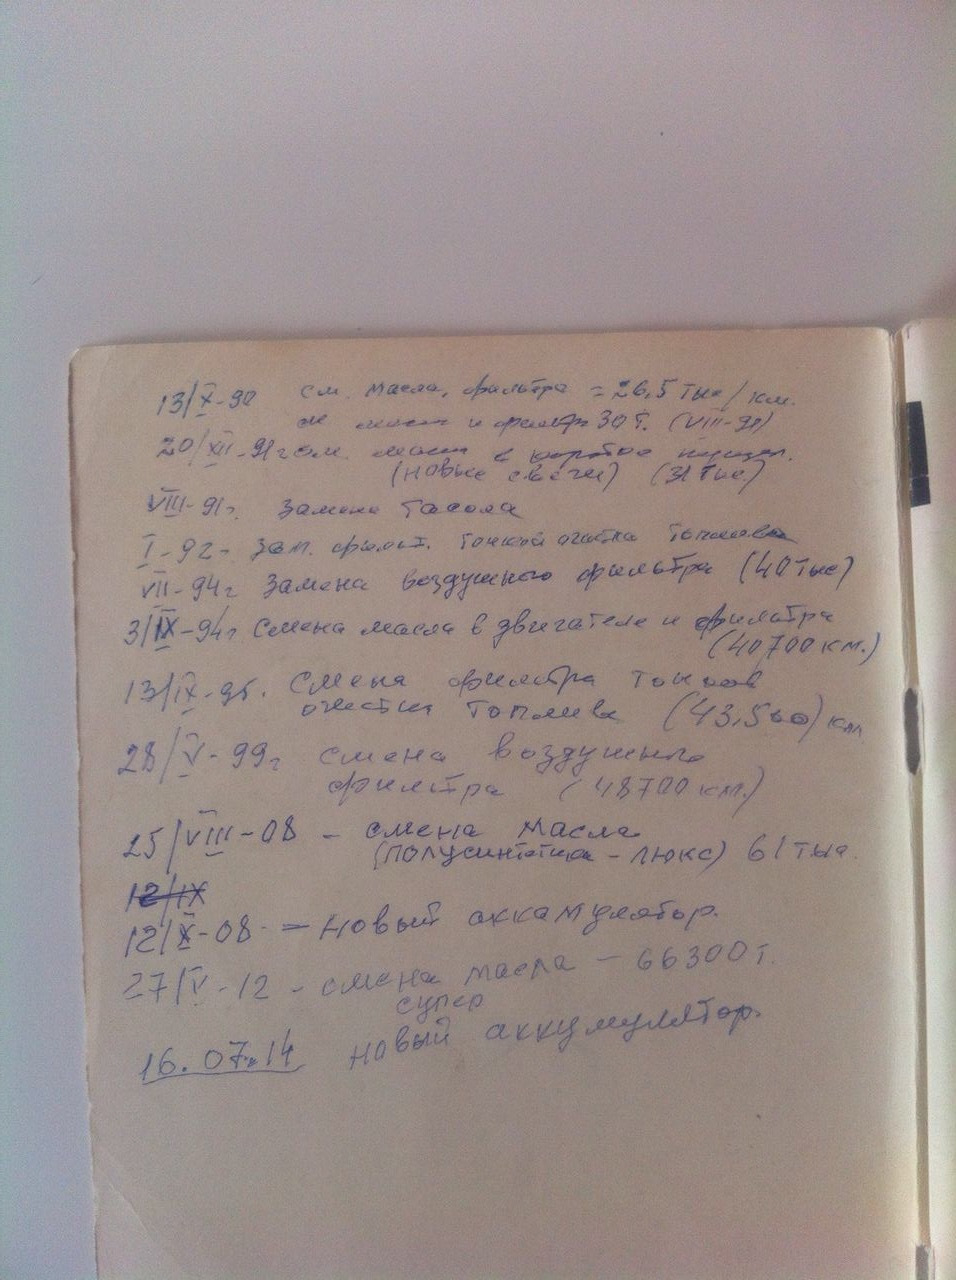 13/X-90 см. масла, фильтра = 26,5 тыс/км.
и фильтр 30 т. (VIII-91)
20/XII-91г см. масл в коробке
(новые свечи) (31 тыс.)
VIII-91г. Замена Тасола
I-92г. Зам. фильт. тонкой очистки топлива
VII-94г Замена воздушного фильтра (40 тыс)
3/IX-94г Смена масла в двигателе и фильтра
(40700 км.)
13/IX-95. Смена фильтра тонкой
очистки топлива (43,500) км
28/V-99г смена воздушного
фильтра (48700 км.)
25/VIII-08 - смена масла
(полусинтетика - люкс) 61 тыс.
12/IX
12/X-08 - новый аккамулятор.
27/V-12 - смена масла - 66300 т.
супер
16.07.14 новый аккумулятор.